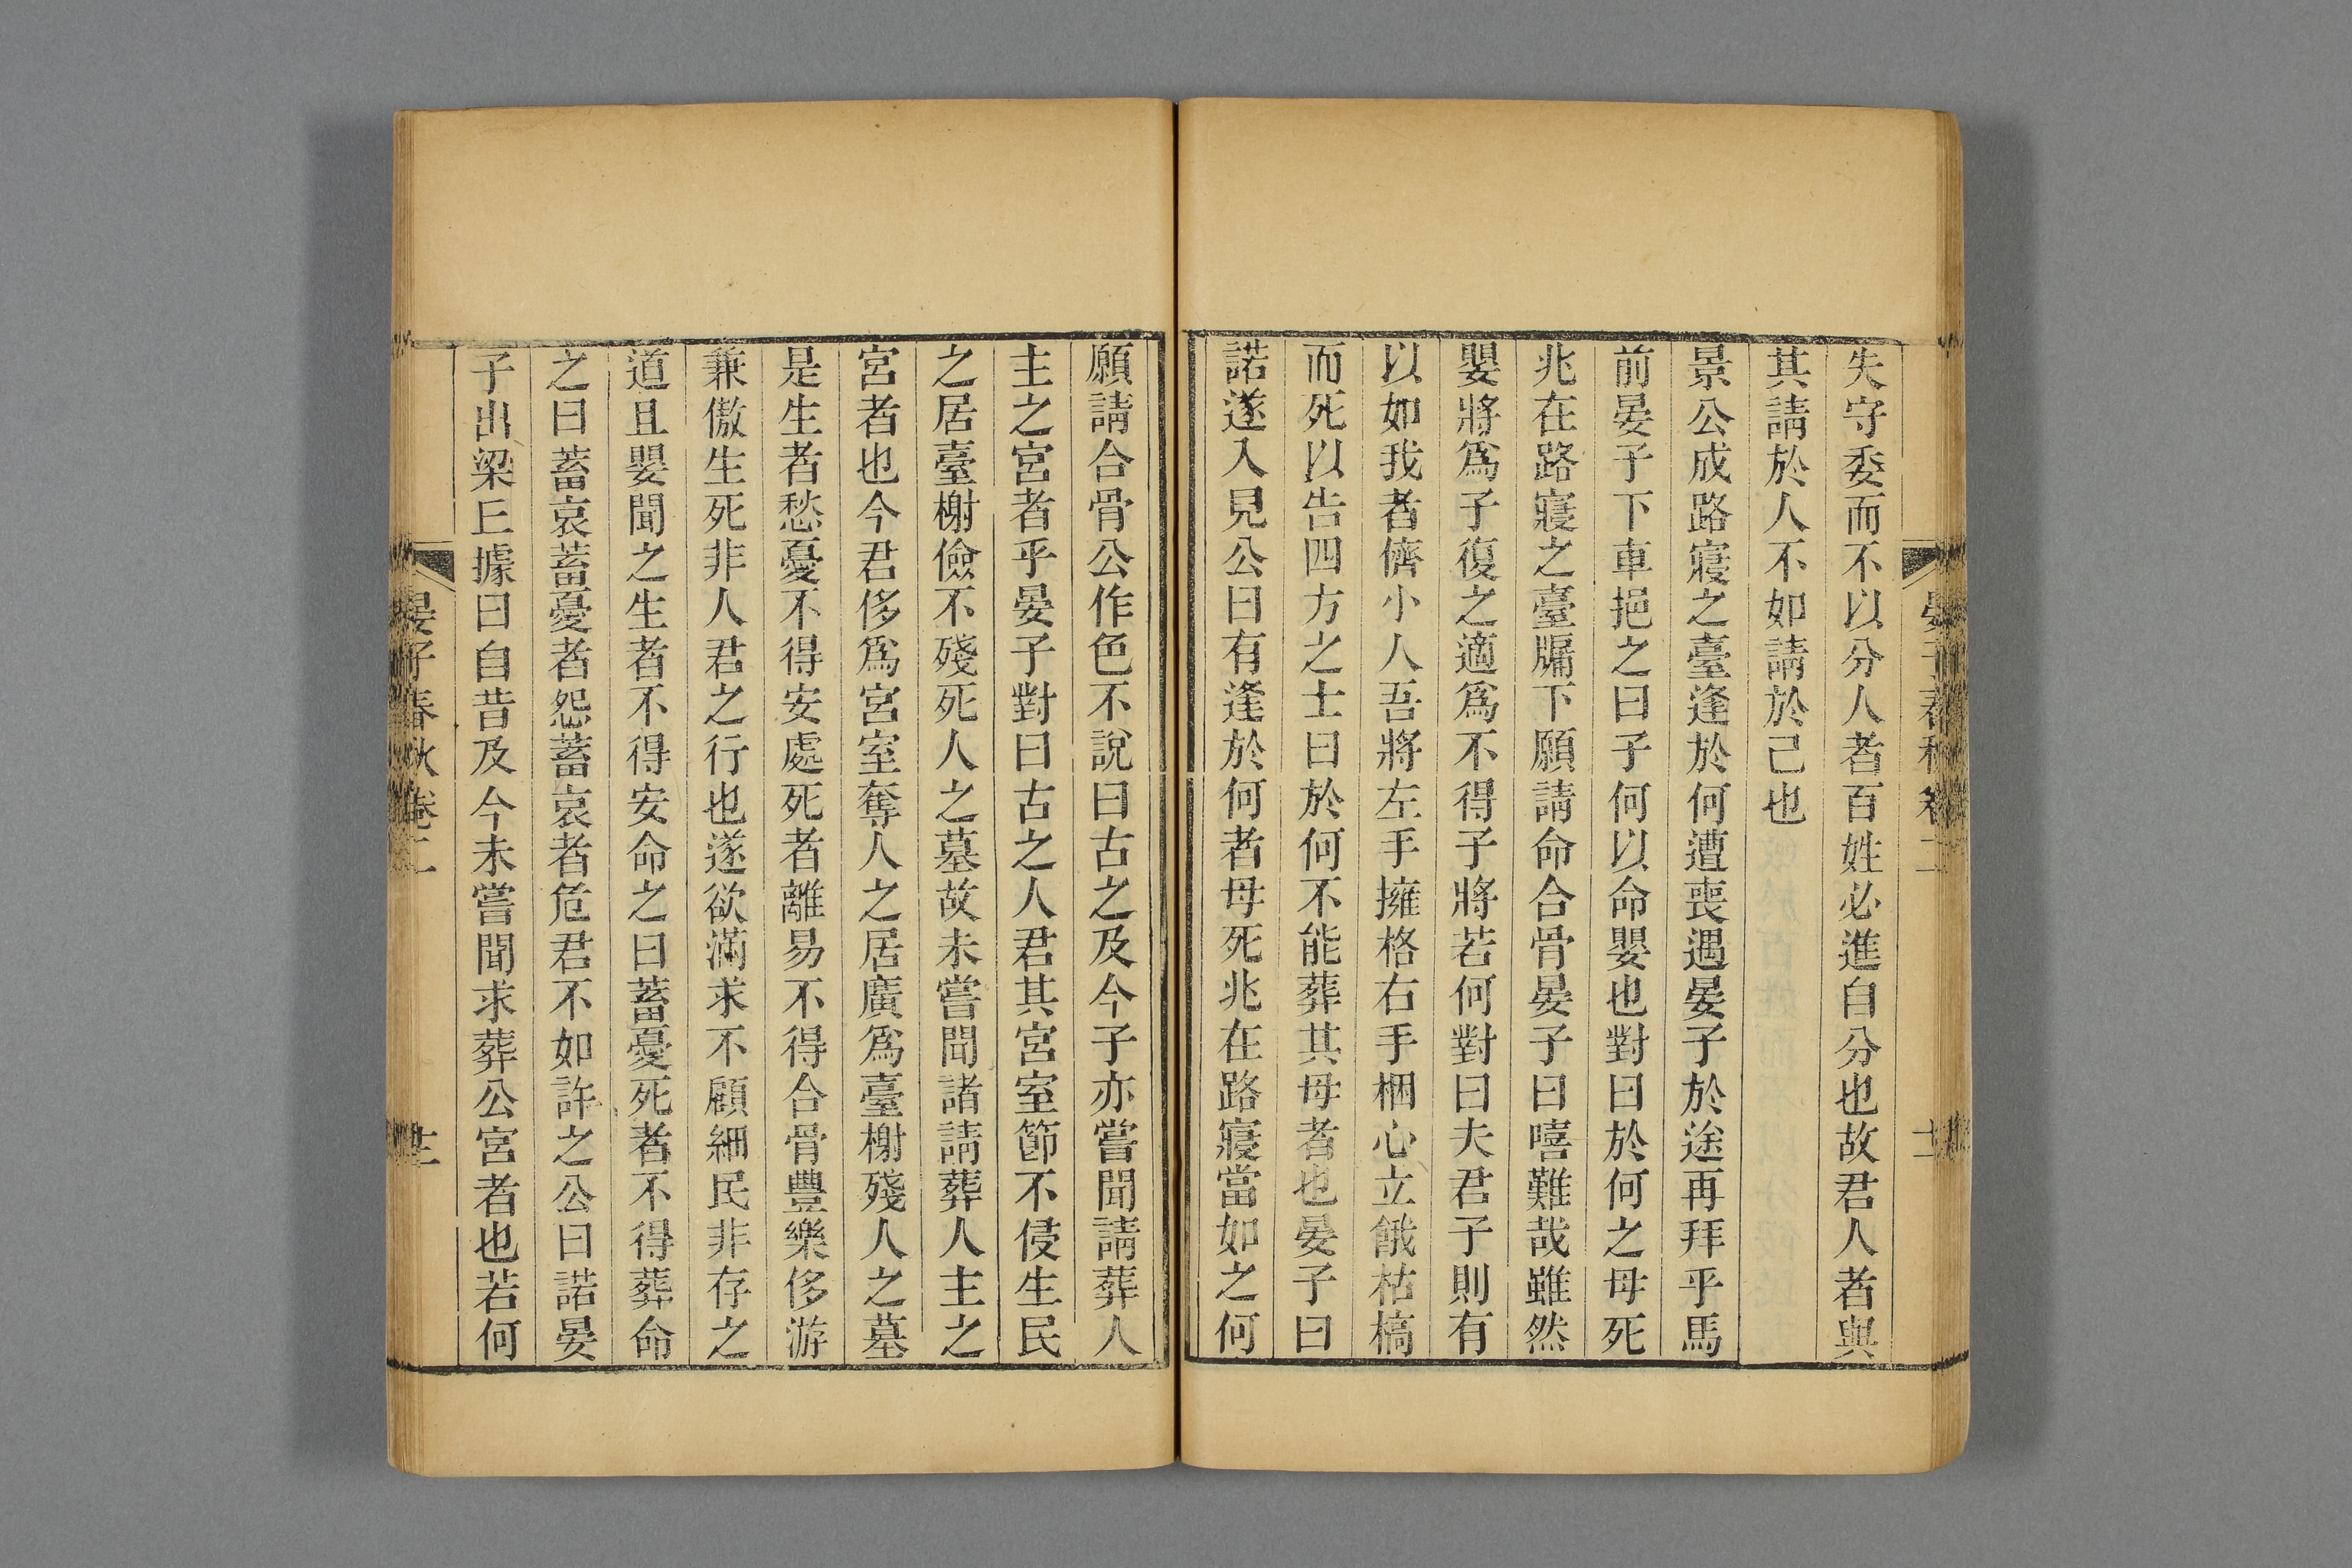 失守委而不以分人者百姓必進自分也故君人者與
其請於人不如請於己也
景公成路寢之臺逢於何遭喪遇晏子於途再拜乎馬
前晏子下車挹之曰子何以命嬰也對曰於何之母死
兆在路寢之臺牖下願請命合骨晏子曰嘻難哉雖然
嬰將爲子復之適爲不得子將若何對曰夫君子則有
以如我者儕小人吾將左手擁格右手梱心立餓枯槁
而死以告四方之士曰於何不能葬其母者也晏子曰
諾遂入見公曰有逢於何者母死兆在路寢當如之何
願請合骨公作色不說曰古之及今子亦嘗聞請葬人
主之宮者乎晏子對曰古之人君其宮室節不侵生民
之居臺榭儉不殘死人之墓故未嘗聞諸請葬人主之
宮者也今君侈爲宮室奪人之居廣爲臺榭殘人之墓
是生者愁憂不得安處死者離易不得合骨豐樂侈游
兼傲生死非人君之行也遂欲滿求不顧細民非存之
道且嬰聞之生者不得安命之曰蓄憂死者不得葬命
之曰蓄哀蓄憂者怨蓄哀者危君不如許之公曰諾晏
子出梁丘據曰自昔及今未嘗聞求葬公宮者也若何
晏子春秋卷二